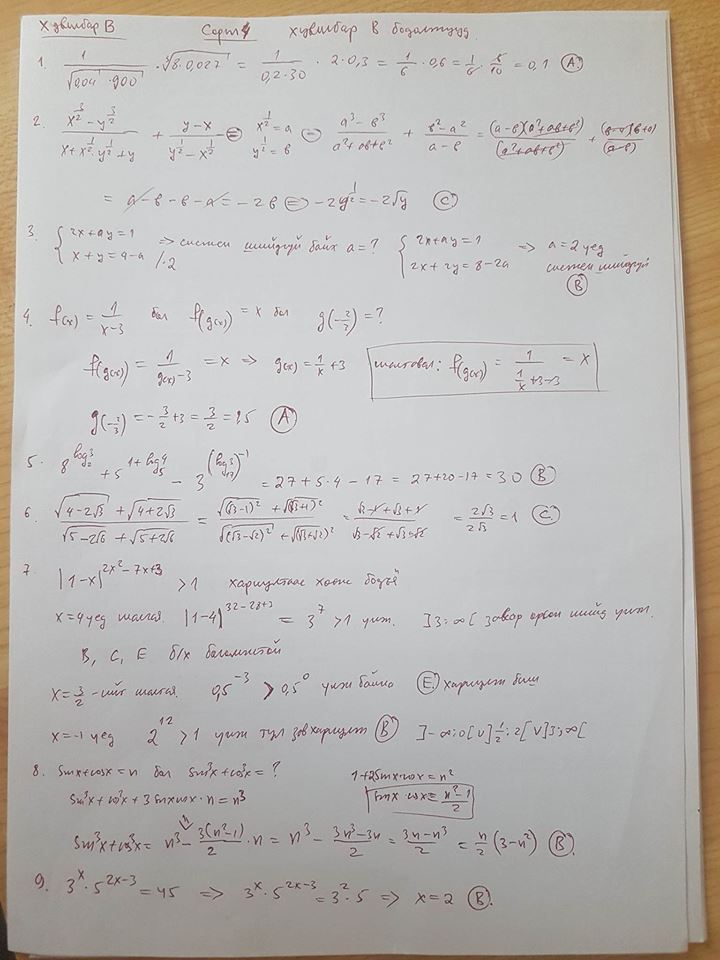 Хувилбар В Сорил 4 хувилбар В бодолтууд
1. 1/(√(0,04 · 900)) · ∛(8·0,027) = 1/(0,2·30) · 2·0,3 = 1/6 · 0,6 = 1/6 · 6/10 = 0,1 (A.)
2. (x^(3/2) − y^(3/2))/(x + x^(1/2)·y^(1/2) + y) + (y−x)/(y^(1/2) − x^(1/2)) = x^(1/2) = a y^(1/2) = в = (a³−в³)/(a²+aв+в²) + (в²−a²)/(a−в) = (a−в)(a²+aв+в²)/(a²+aв+в²) + (в−a)(в+a)/(a−в)
= a−в−в−a = −2в = −2y^(1/2) = −2√y (C.)
3. { 2x+ay=1 x+y=4−a /·2 => систем шийдгүй байх a=? { 2x+ay=1 2x+2y=8−2a => a=2 үед систем шийдгүй (B.)
4. f(x) = 1/(x−3) бол f(g(x)) = x бол g(−2/3) = ?
f(g(x)) = 1/(g(x)−3) = x => g(x) = 1/x + 3 шалтгвал: f(g(x)) = 1/(1/x+3−3) = x
g(−2/3) = −3/2+3 = 3/2 = 1,5 (A)
5. 8^(log₂3) + 5^(1+log₅4) − 3^((log₁₇3)^(−1)) = 27+5·4−17 = 27+20−17 = 30 (B.)
6. (√(4−2√3) + √(4+2√3))/(√(5−2√6) + √(5+2√6)) = (√((√3−1)²) + √((√3+1)²))/(√((√3−√2)²) + √((√3+√2)²)) = (√3−1+√3+1)/(√3−√2+√3+√2) = 2√3/2√3 = 1 (C.)
7. |1−x|^(2x²−7x+3) > 1 хариултаас хөөж бодъё
x=4 үед шалгая. |1−4|^(32−28+3) = 3⁷ > 1 үнэн. ]3;∞[ завсар орсон шийд үнэн.
B, C, E б/х боломжтой
x=3/2 -ийг шалгая 0,5^(−3) > 0,5⁰ үнэн байна (E.) хариулт биш
x=−1 үед 2^12 > 1 үнэн тул зөв хариулт (B.) ]−∞;0[∪]1/2;2[∪]3;∞[
8. sinx+cosx=n бол sin³x+cos³x=? 1+2sinx·cosx=n²
sin³x+cos³x+3sinxcosx·n=n³ sinx·cosx=(n²−1)/2
sin³x+cos³x = n³ − 3(n²−1)/2 · n = n³ − (3n³−3n)/2 = (3n−n³)/2 = n/2 (3−n²) (B.)
9. 3^x · 5^(2x−3) = 45 => 3^x · 5^(2x−3) = 3²·5 => x=2 (B.)